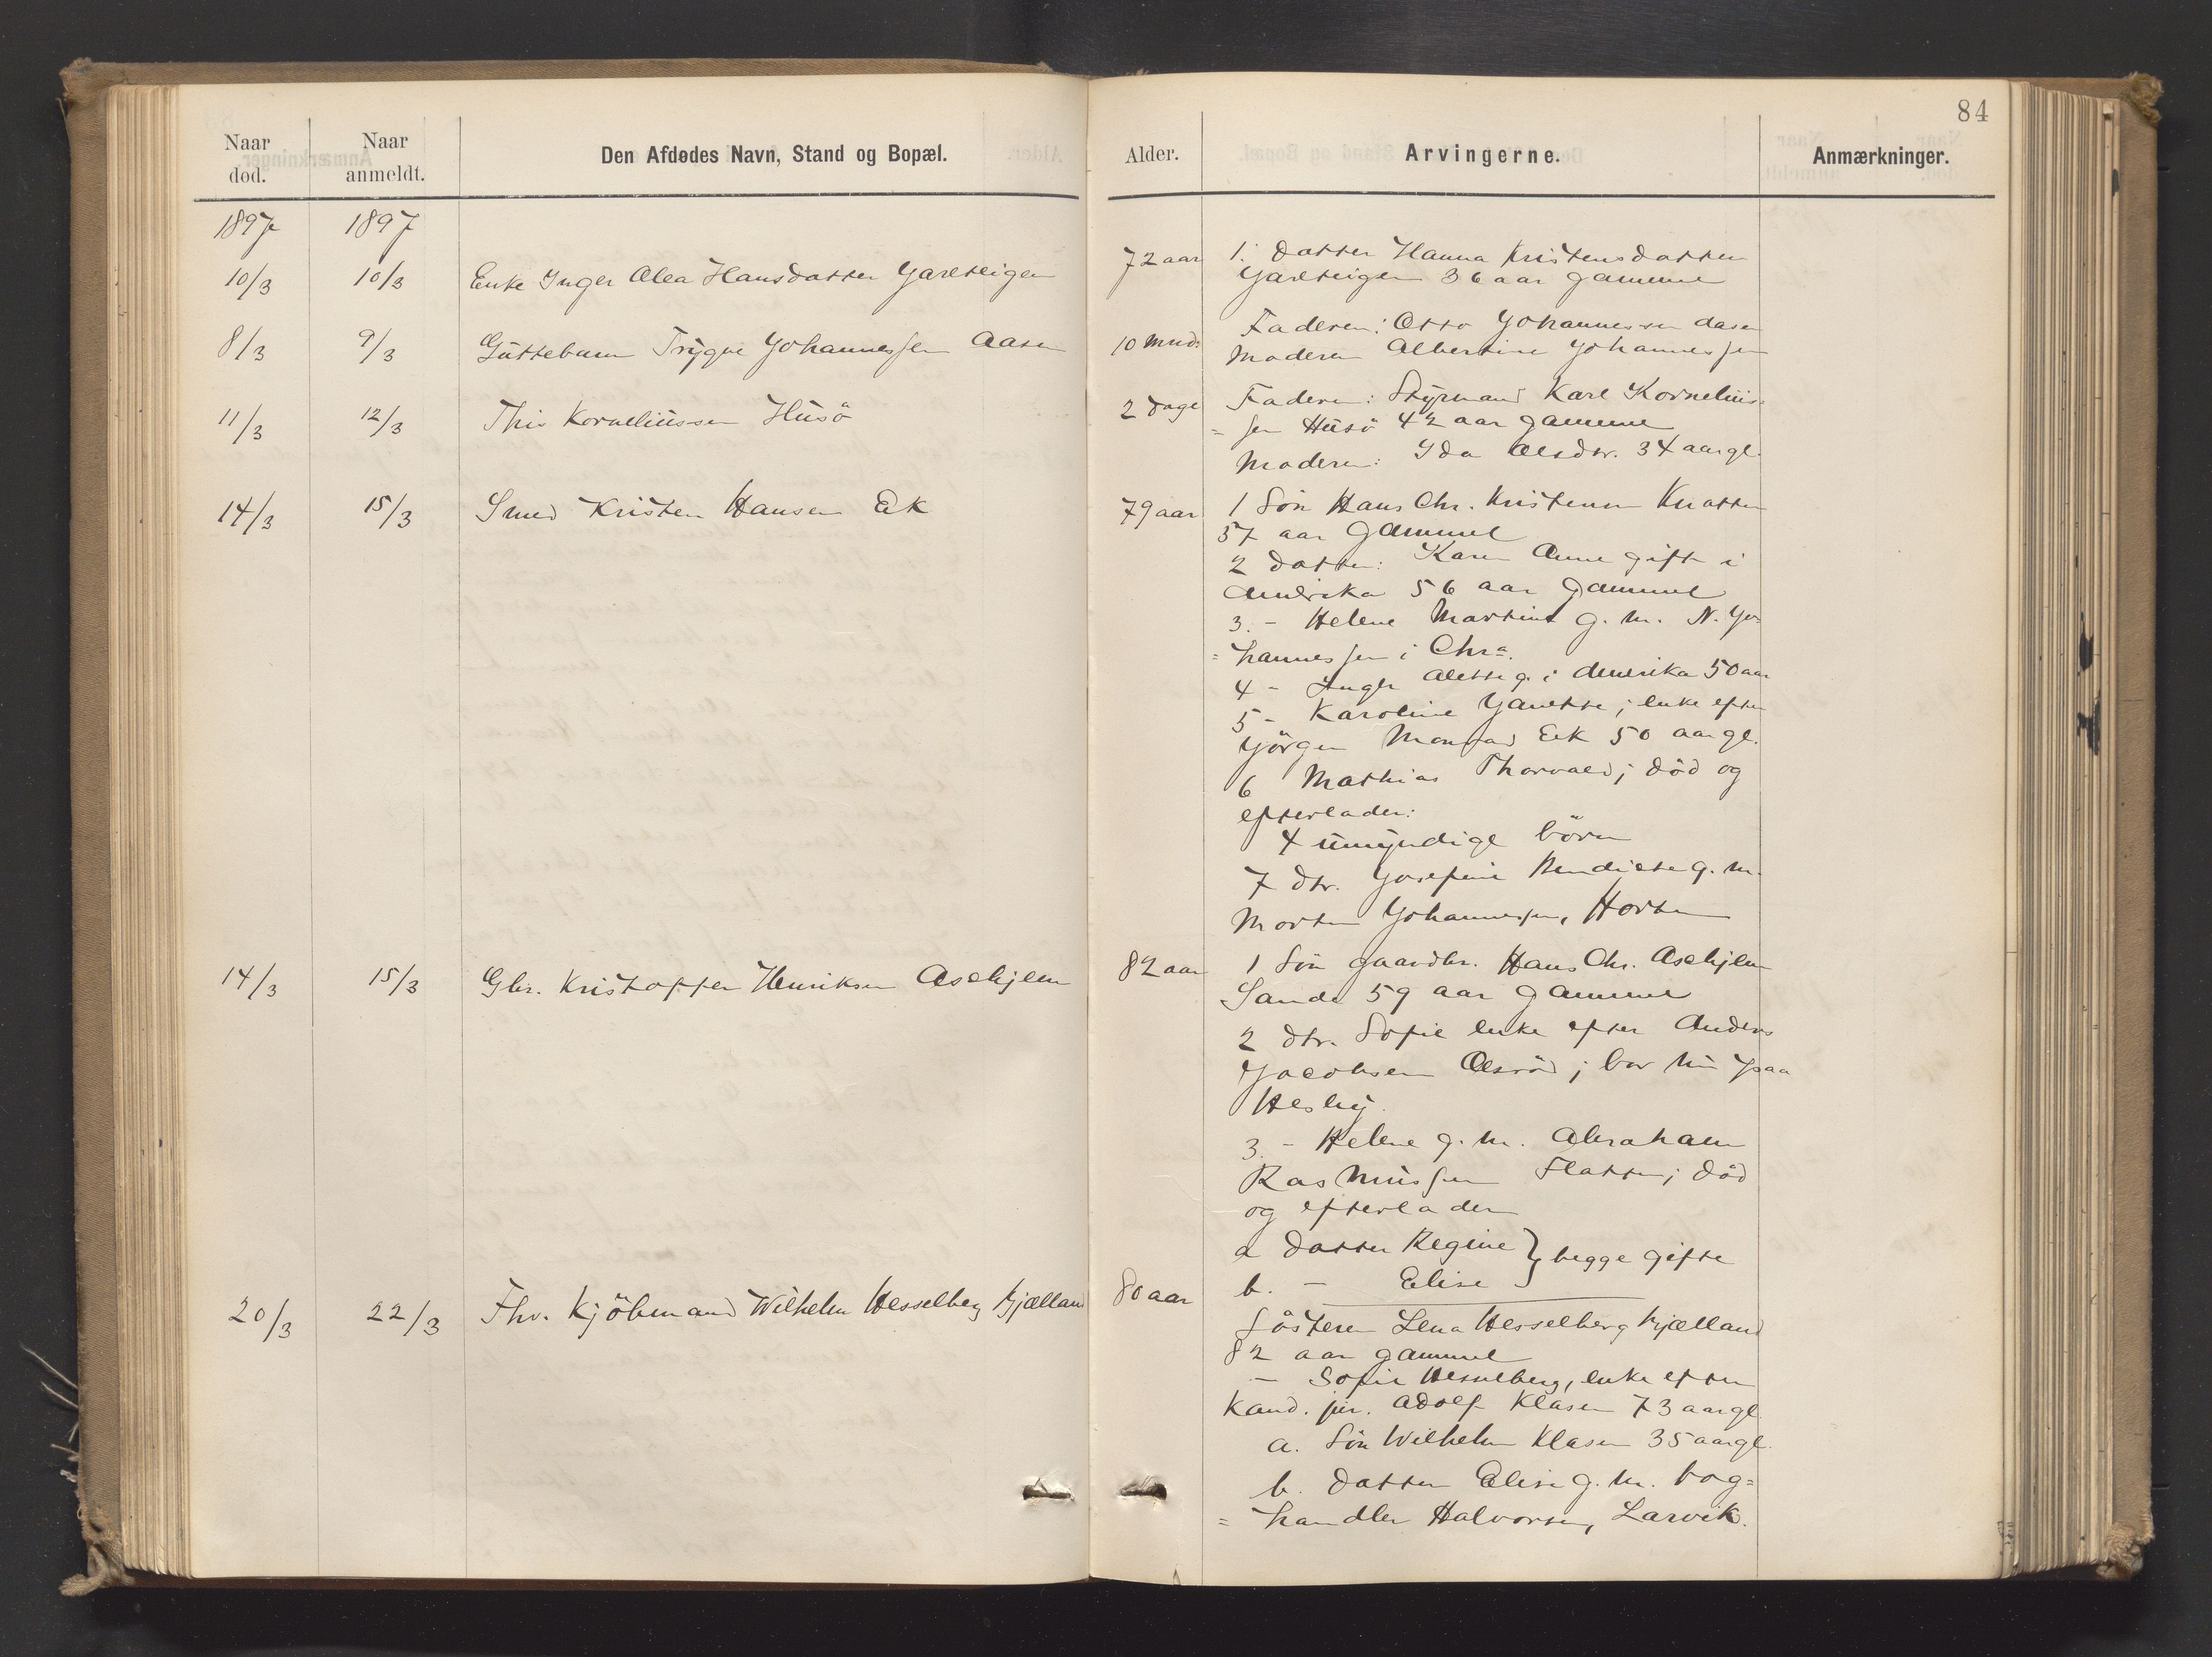 84
Naar død.
Naar anmeldt.
Den Afdødes Navn, Stand og Bopæl.
Alder.
Arvingerne.
Anmærkninger.
1897
1897
10/3
10/3
Enke Inger Olea Hansdatter Jarlteigen
72 aar
1. Datter Hanna Kristensdatter
Jarlteigen 36 aar gammel
8/3
9/3
Guttebarn Trygve Johannessen Aasen
10 mnd:
Faderen: Otto Johannessen Aasen
Moderen Albertine Johannessen
11/3
12/3
This Korneliussen Husö
2 dage
Faderen: Styrmand Karl Kornelius=
= sen Husö 42 aar gammel
Moderen: Ida Olsdtr. 34 aar gl.
14/3
15/3
Smed Kristen Hansen Ek
79 aar
1 Sön Hans Chr. Kristensen Knatten
57 aar gammel
2 Datter: Karen Anne gift i
Amerika 56 aar gammel
3. - Helene Martine g. m. N. Jo=
= hannessen i Chra.
4 - Inger Alette g. i Amerika 50 aar
5 - Karoline Janette; enke efter
Jörgen Monsad Eek 50 aar gl.
6 Mathias Thorvald; död og
efterlader:
4 umyndige börn
7 dtr. Josefine Bendicte g. m.
Morten Johannessen, Horten
14/3
15/3
Gbr. Kristoffer Henriksen Askjem
82 aar
1 Sön gaardbr. Hans Chr. Askjem
Sande 59 aar gammel
2 dtr. Sofie enke efter Anders
Jacobsen Olsröd; bor nu paa
Hesby.
3. - Helene g. m. Abraham
Rasmussen Flatten; död
og efterlader
a Datter Regine } begge gifte
b. - Elise
20/3
22/3
Fhv. Kjöbmand Wilhelm Hesselberg Kjælland
80 aar
Sösteren Lena Hesselberg Kjælland
82 aar gammel
- Sofie Hesselberg, enke efter
Kand. jur. Adolf Klasen 73 aar gl.
a. Sön Wilhelm Klasen 35 aar gl.
b. Datter Elise g. m. bog=
= handler Halvorsen, Larvik.